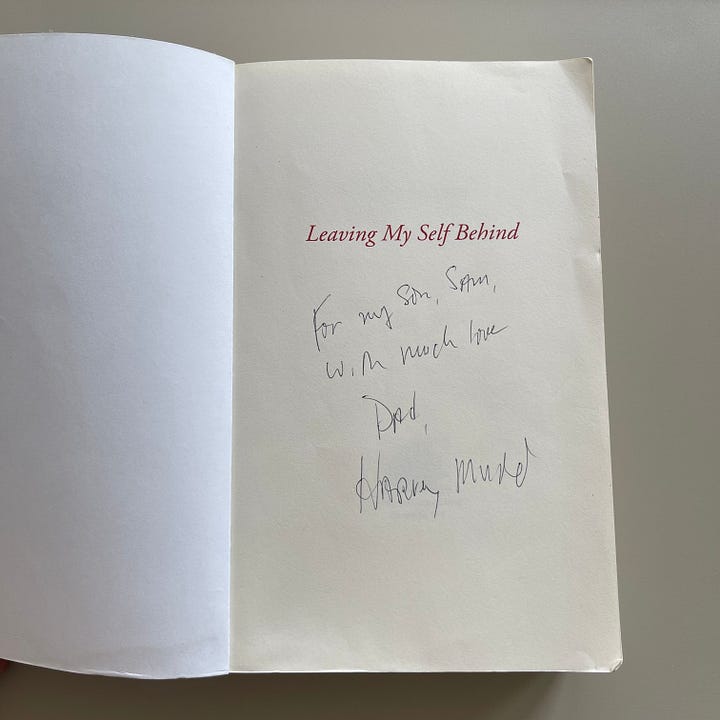 Leaving My Self Behind
For my son, Sam,
with much love
Dad,
Harvey Mudd